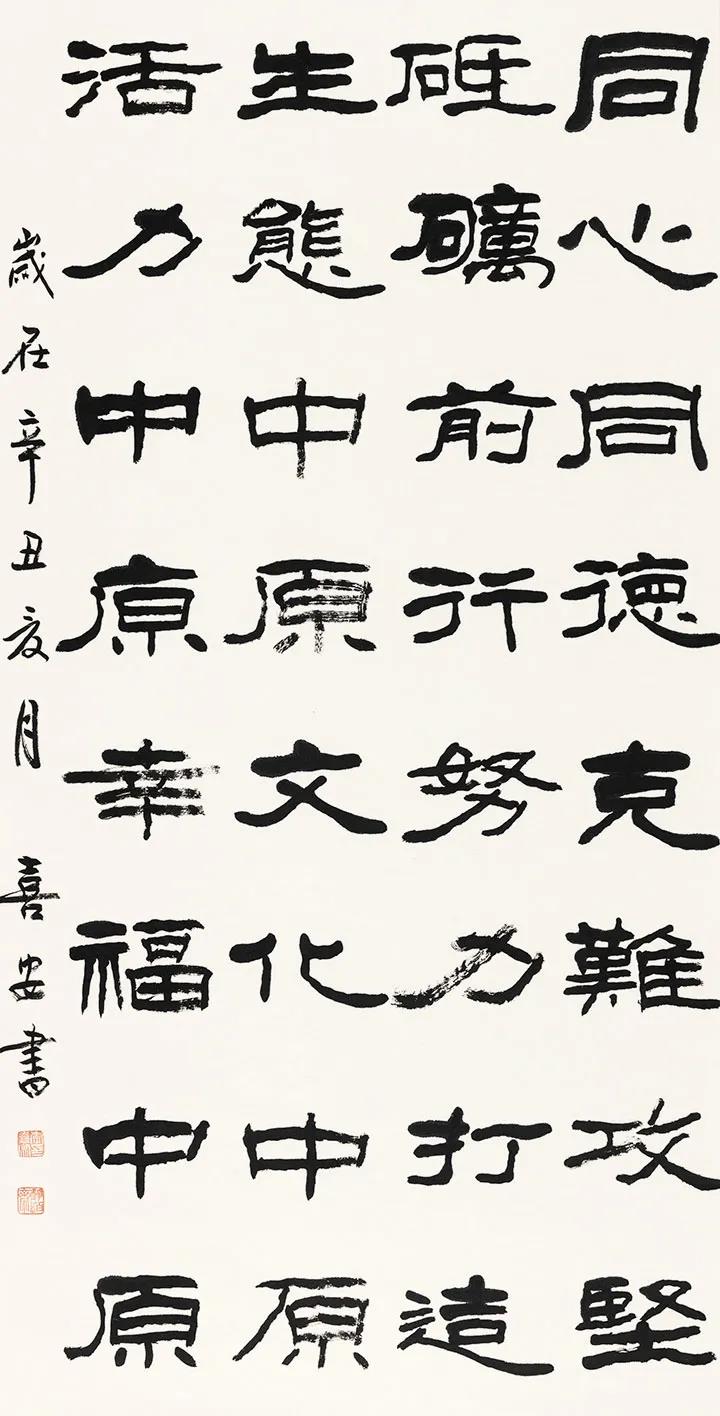 同心同德克難攻堅
砥礪前行努力打造
生態中原文化中原
活力中原幸福中原
歲在辛丑夏月 喜安書